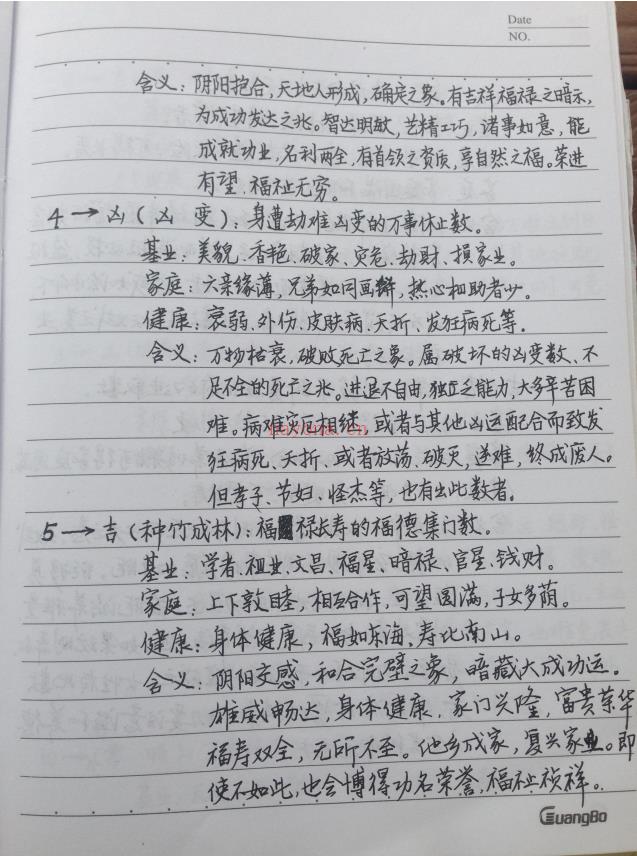 Date
NO.
含义：阴阳抱合，天地人形成，确定之象。有吉祥福禄之暗示，
为成功发达之兆。智达明敏，艺精工巧，诸事如意，能
成就功业，名利两全，有首领之资质，享自然之福。荣进
有望、福祉无穷。
4→凶（凶 变）：身遭劫难凶变的万事休止数。
基业：美貌、香艳、破家、灾危、劫财、损家业。
家庭：六亲缘薄，兄弟如同画饼，热心相助者少。
健康：衰弱、外伤、皮肤病、夭折、发狂病死等。
含义：万物枯衰，破败死亡之象。属破坏的凶变数、不
足不全的死亡之兆。进退不自由，独立之能力，大多辛苦困
难。病难灾厄相继，或者与其他凶运配合而致发
狂病死、夭折、或者放荡、破灭，逆难，终成废人。
但孝子、节妇、怪杰等，也有出此数者。
5→吉（种竹成林）：福禄长寿的福德集门数。
基业：学者、祖业、文昌、福星、暗禄、官星、钱财。
家庭：上下敦睦，相互合作，可望圆满，子女多荫。
健康：身体健康，福如东海，寿比南山。
含义：阴阳交感，和合完璧之象，暗藏大成功运。
雄威畅达，身体健康、家门兴隆，富贵荣华
福寿双全，无所不至。他乡成家，复兴家业。即
使不如此，也会博得功名荣誉，福祉祯祥。
GuangBo